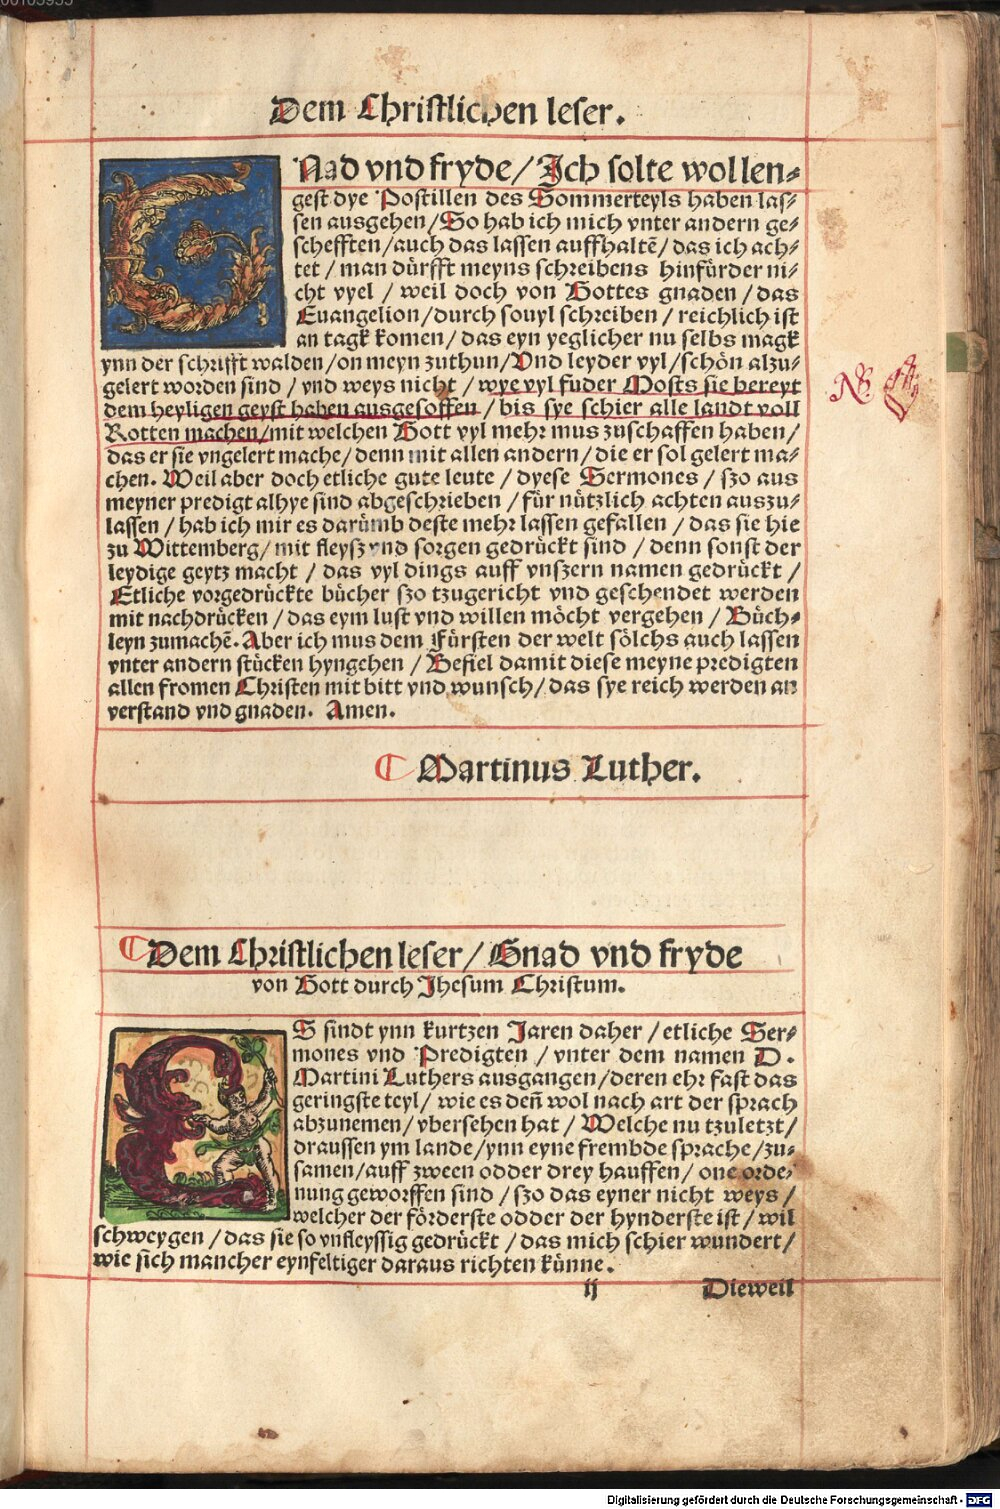 Dem Christlichen leser.
GNad vnd fryde/ Ich solte wol len-
gest dye Postillen des Sommerteyls haben las-
sen ausgehen/ So hab ich mich vnter andern ge-
schefften/ auch das lassen auffhaltē/ das ich ach-
tet/ man dürfft meyns schreibens hinfürder ni-
cht vyel/ weil doch von Gottes gnaden/ das
Euangelion/ durch souyl schreiben/ reichlich ist
an tagk komen/ das eyn yeglicher nu selbs magk
ynn der schrifft walden/ on meyn zuthun/ Vnd leyder vyl/ schön alzu-
gelert worden sind/ vnd weys nicht/ wye vyl fuder Mosts sie bereyt
dem heyligen geyst haben ausgesoffen/ bis sye schier alle landt voll
Rotten machen/ mit welchen Gott vyl mehr mus zuschaffen haben/
das er sie vngelert mache/ denn mit allen andern/ die er sol gelert ma-
chen. Weil aber doch etliche gute leute/ dyese Sermones/ szo aus
meyner predigt alhye sind abgeschrieben/ für nützlich achten auszu-
lassen/ hab ich mir es darümb deste mehr lassen gefallen/ das sie hie
zu Wittemberg/ mit fleysz vnd sorgen gedrückt sind/ denn sonst der
leydige geytz macht/ das vyl dings auff vnszern namen gedrückt/
Etliche vorgedrückte bücher szo tzugericht vnd geschendet werden
mit nachdrücken/ das eym lust vnd willen möcht vergehen/ Büch-
leyn zumachē. Aber ich mus dem Fürsten der welt sölchs auch lassen
vnter andern stücken hyngehen/ Befiel damit diese meyne predigten
allen fromen Christen mit bitt vnd wunsch/ das sye reich werden an
verstand vnd gnaden. Amen.
NB
Martinus Luther.
Dem Christlichen leser/ Gnad vnd fryde
von Gott durch Jhesum Christum.
ES sindt ynn kurtzen Jaren daher/ etliche Ser-
mones vnd Predigten/ vnter dem namen D.
Martini Luthers ausgangen/ deren ehr fast das
geringste teyl/ wie es deñ wol nach art der sprach
abzunemen/ vbersehen hat/ Welche nu tzuletzt/
draussen ym lande/ ynn eyne frembde sprache/ zu-
samen/ auff zween odder drey hauffen/ one orde-
nung geworffen sind/ szo das eyner nicht weys/
welcher der förderste odder der hynderste ist/ wil
schweygen/ das sie so vnfleyssig gedrückt/ das mich schier wundert/
wie sich mancher eynfeltiger daraus richten künne.
ij Dieweil
Digitalisierung gefördert durch die Deutsche Forschungsgemeinschaft - DFG